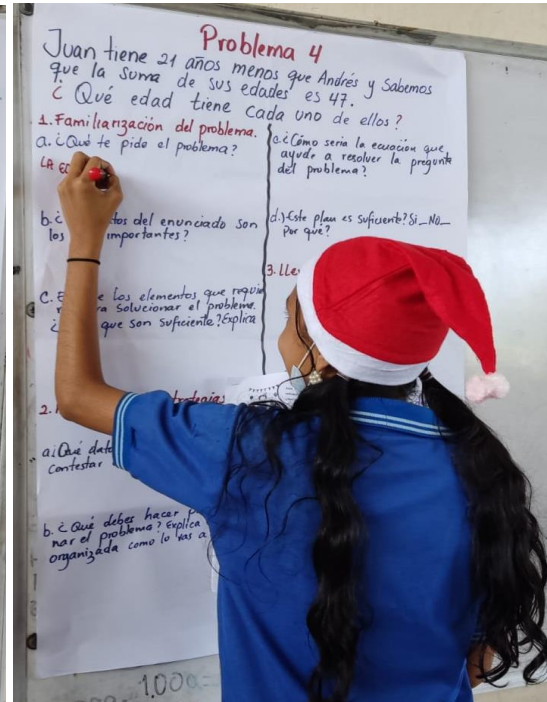 Problema 4
Juan tiene 21 años menos que Andrés y Sabemos
que la suma de sus edades es 47.
¿Qué edad tiene cada uno de ellos?
1. Familiarización del problema.
a. ¿Qué te pide el problema?
LA
b. ¿ del enunciado son
los importantes?
C. los elementos que
solucionar el problema.
¿ que son suficiente? Explica
2.
a¿Qué
contestar
b. ¿Qué debes hacer
nar el problema? explica
organizada como lo vas a
c. ¿Cómo seria la ecuación que
ayude a resolver la pregunta
del problema?
d.) Este plan es suficiente? Si_ No_
Por qué?
3.
1.000